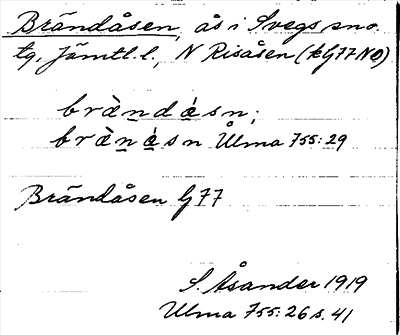 Brändåsen, ås i Svegs sno.
tg. Jämtl. l., N Risåsen (kG77NO)
brä̀nda̗sn;
brä̀na̗sn Ulma 755:29
Brändåsen G77
S. Åsander 1919
Ulma 755:26 s. 41